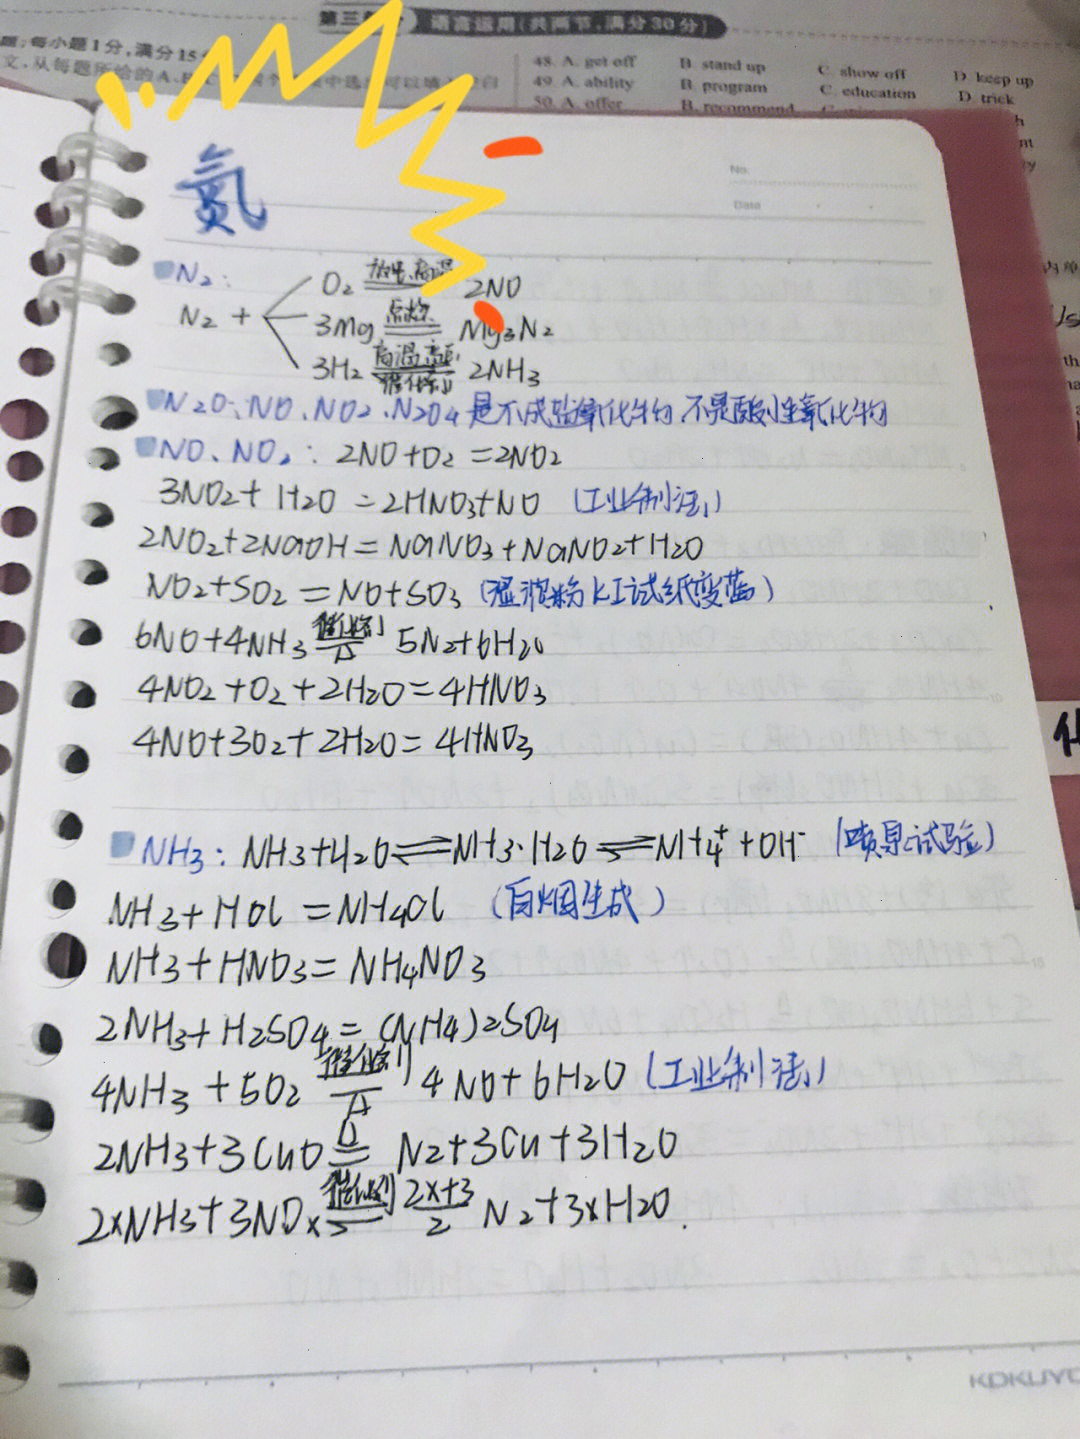 语言运用(共两节,满分30分)
题;每小题1分,满分15
48. A. get off B. stand up C. show off D. keep up
49. A. ability B. program C. education D. trick
50. A. offer B. recommend
No.
Date
氮
N2:
N2 +
O2 放电、高温 2NO
3Mg 点燃 Mg3N2
3H2 高温高压 催化剂 2NH3
N2O、NO、NO2、N2O4是不成盐氧化物 不是酸性氧化物
NO、NO2: 2NO+O2=2NO2
3NO2+H2O=2HNO3+NO (工业制法)
2NO2+2NaOH=NaNO3+NaNO2+H2O
NO2+SO2=NO+SO3 (湿淀粉KI试纸变蓝)
6NO+4NH3 催化剂 △ 5N2+6H2O
4NO2+O2+2H2O=4HNO3
4NO+3O2+2H2O=4HNO3
NH3: NH3+H2O⇌NH3·H2O⇌NH4⁺+OH⁻ (喷泉试验)
NH3+HCl=NH4Cl (白烟生成)
NH3+HNO3=NH4NO3
2NH3+H2SO4=(NH4)2SO4
4NH3+5O2 催化剂 △ 4NO+6H2O (工业制法)
2NH3+3CuO △= N2+3Cu+3H2O
2xNH3+3NOx 催化剂= 2x+3/2 N2+3xH2O.
KOKUYO